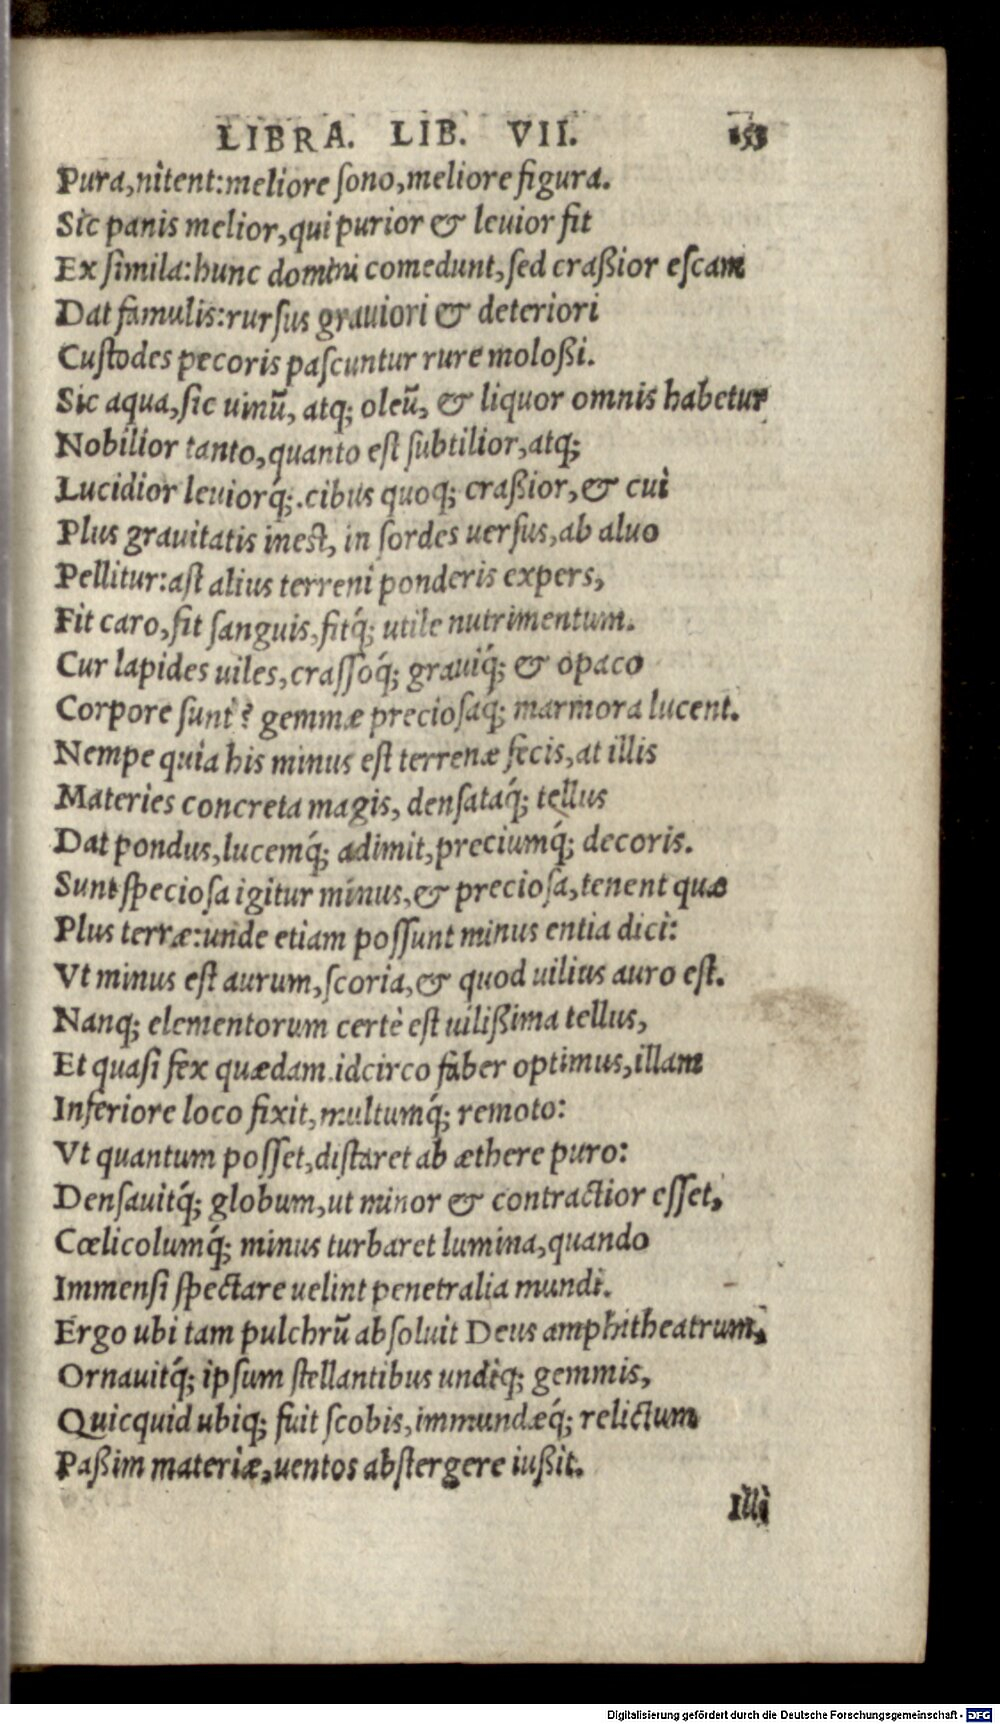 LIBRA. LIB. VII. 153
Pura, nitent: meliore ſono, meliore figura.
Sic panis melior, qui purior & leuior fit
Ex ſimila: hunc domini comedunt, ſed craßior eſcam
Dat famulis: rurſus grauiori & deteriori
Cuſtodes pecoris paſcuntur rure moloßi.
Sic aqua, ſic uinũ, atq; oleũ, & liquor omnis habetur
Nobilior tanto, quanto eſt ſubtilior, atq;
Lucidior leuiorq́;. cibus quoq; craßior, & cui
Plus grauitatis ineſt, in ſordes uerſus, ab aluo
Pellitur: aſt alius terreni ponderis expers,
Fit caro, fit ſanguis, fitq́; utile nutrimentum.
Cur lapides uiles, craſſoq́; grauiq́; & opaco
Corpore ſunt? gemmæ precioſaq; marmora lucent.
Nempe quia his minus eſt terrenæ fecis, at illis
Materies concreta magis, denſataq́; tellus
Dat pondus, lucemq́; adimit, preciumq́; decoris.
Sunt ſpecioſa igitur minus, & precioſa, tenent quæ
Plus terræ: unde etiam poſſunt minus entia dici:
Vt minus eſt aurum, ſcoria, & quod uilius auro eſt.
Nanq; elementorum certè eſt uilißima tellus,
Et quaſi fex quædam. idcirco faber optimus, illam
Inferiore loco fixit, multumq́; remoto:
Vt quantum poſſet, diſtaret ab æthere puro:
Denſauitq́; globum, ut minor & contractior eſſet,
Cœlicolumq́; minus turbaret lumina, quando
Immenſi ſpectare uelint penetralia mundi.
Ergo ubi tam pulchrũ abſoluit Deus amphitheatrum,
Ornauitq́; ipſum ſtellantibus undiq; gemmis,
Quicquid ubiq; fuit ſcobis, immundæq́; relictum
Paßim materiæ, uentos abſtergere iußit.
Illi
Digitalisierung gefördert durch die Deutsche Forschungsgemeinschaft - DFG